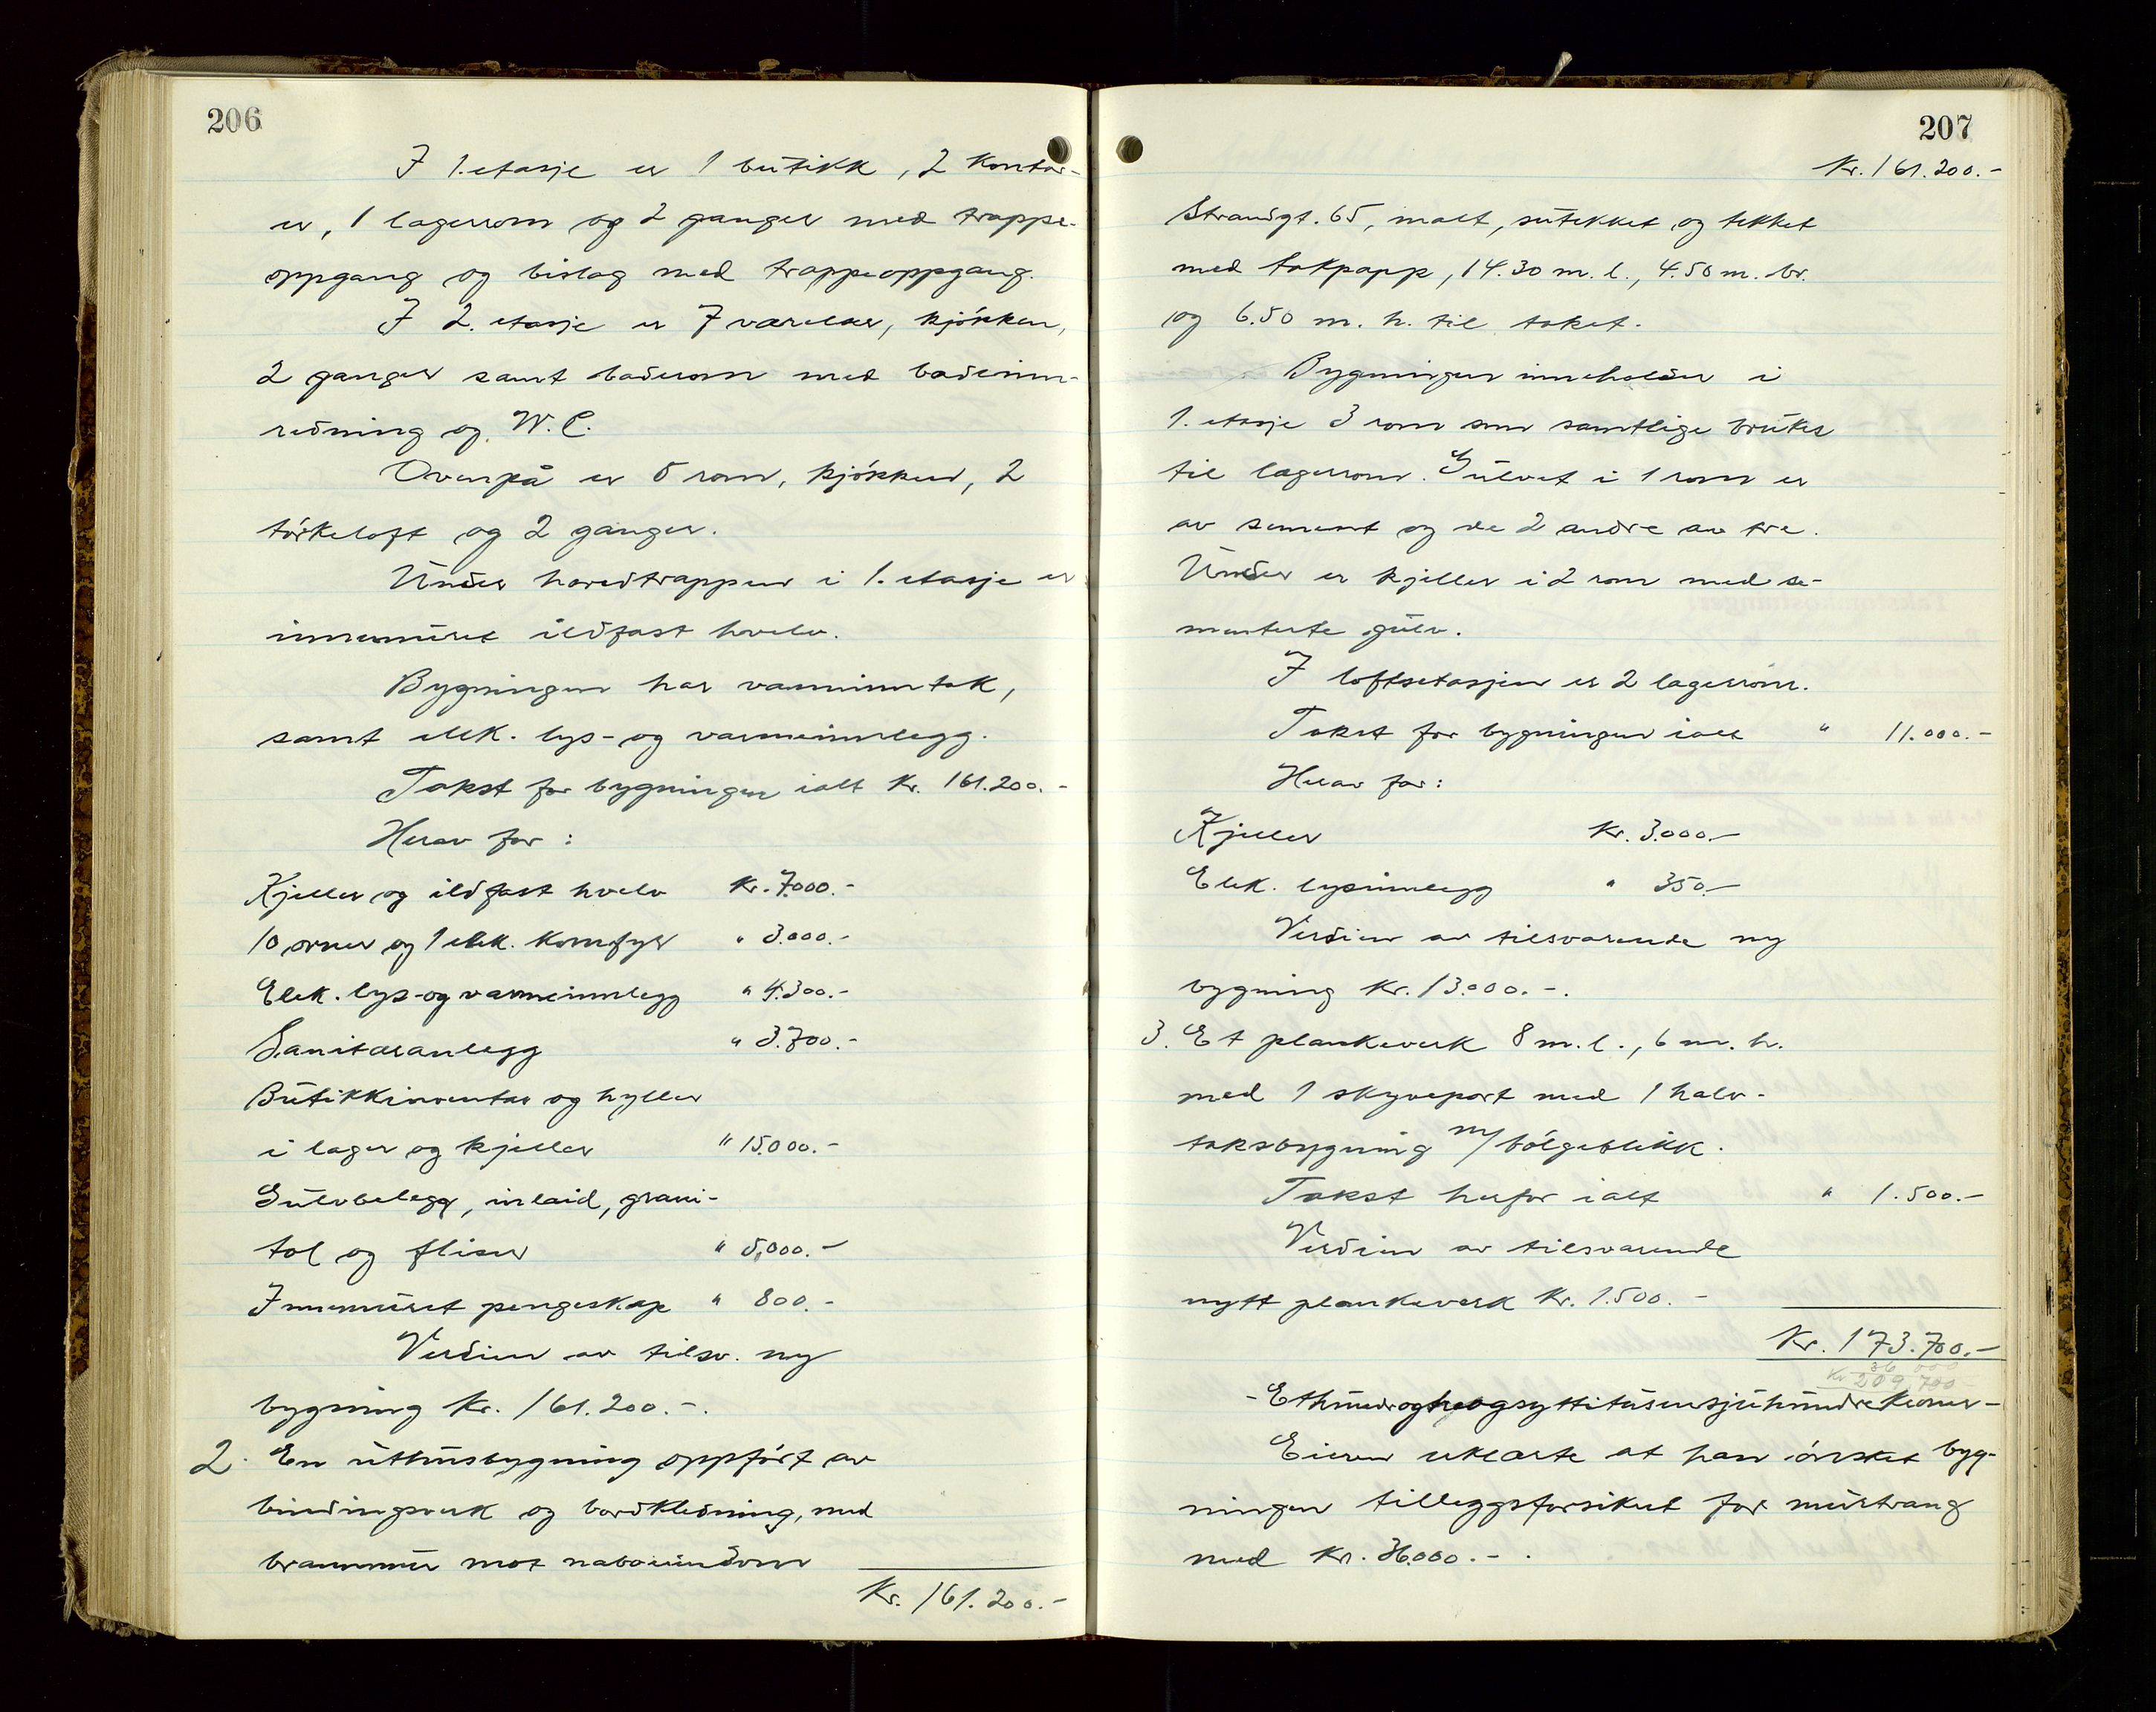 206
I 1. etasje er 1 butikk, 2 kontor-
er, 1 lagerrom og 2 ganger med trappe-
oppgang og bislag med trappeoppgang.
I 2. etasje er 7 værelser, kjökken,
2 ganger samt baderom med badeinn-
redning og W.C.
Ovenpå er 5 rom, kjökken, 2
törkeloft og 2 ganger.
Under hovedtrappen i 1. etasje er
innemuret ildfast hvelv.
Bygningen har vanninntak,
samt elek. lys- og varmeinnlegg.
Takst for bygningen ialt Kr. 161.200.-
Herav for:
Kjeller og ildfast hvelv Kr. 7.000.-
10 ovner og 1 elek. komfyr " 3.000.-
Elek. lys- og varmeinnlegg " 4.300.-
Sanitæranlegg " 3.700.-
Butikkinventar og hyller
i lager og kjeller " 15.000.-
Gulvbelegg, inlaid, grani-
tol og fliser " 5.000.-
Innemuret pengeskap " 800.-
Verdien av tilsv. ny
bygning Kr. 161.200.-.
2. En uthusbygning oppfört av
bindingsverk og bordkledning, med
brannmur mot naboeiendom
Kr. 161.200.-
207
Kr. 161.200.-
Strandgt. 65, malt, sutekket og tekket
med takpapp, 14.30 m. l., 4.50 m. br.
og 6.50 m. h. til taket.
Bygningen inneholder i
1. etasje 3 rom som samtlige brukes
til lagerrom. Gulvet i 1 rom er
av sement og de 2 andre av tre.
Under er kjeller i 2 rom med se-
menterte gulv.
I loftsetasjen er 2 lagerrom.
Takst for bygningen ialt " 11.000.-
Herav for:
Kjeller Kr. 3.000.-
Elek. lysinnlegg " 350.-
Verdien av tilsvarende ny
bygning Kr. 13.000.-.
3. Et plankeverk 8 m. l., 6 m. h.
med 1 skyveport med 1 halv-
taksbygning m/bölgeblikk.
Takst herfor ialt " 1.500.-
Verdien av tilsvarende
nytt plankeverk Kr. 1.500.-
Kr. 173.700.-
36 000
Kr 209 700
- Ethundreogtreogsyttitusensjuhundrekroner -
Eieren erklærte at han önsket byg-
ningen tilleggsforsikret for murtvang
med Kr. 36.000.-.